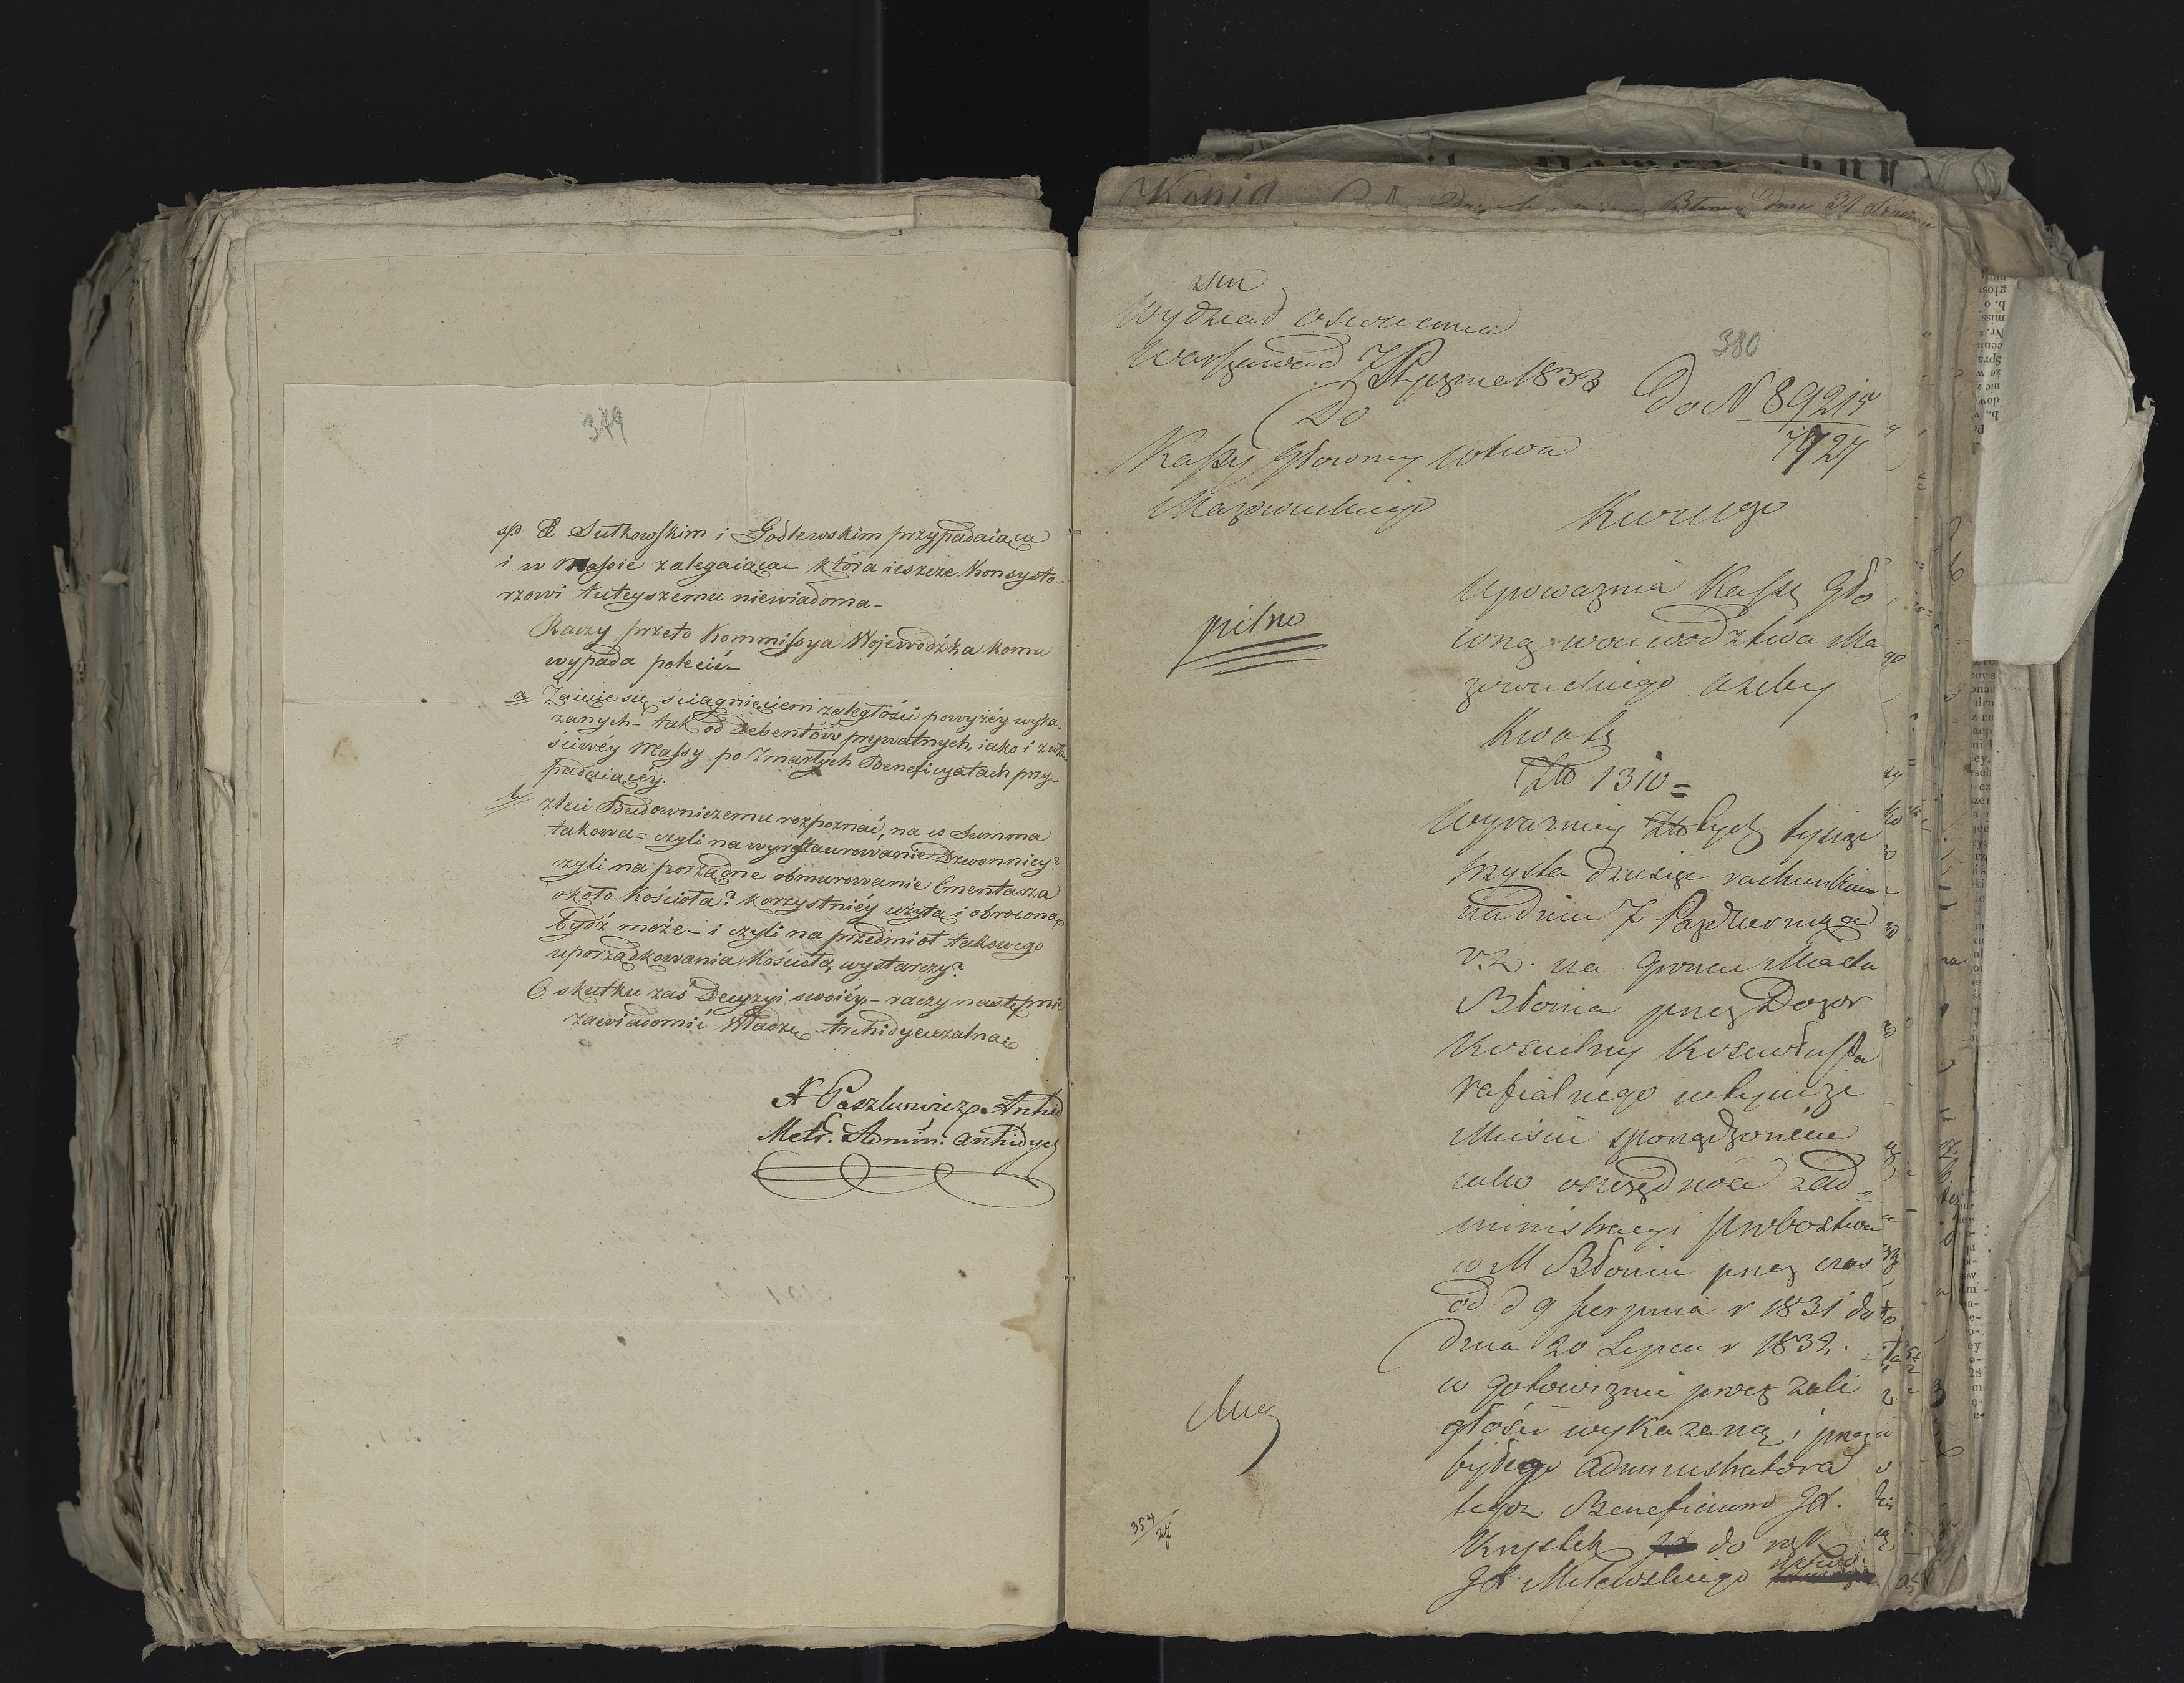 379
sp X Sutkowskim i Godlewskim przypadaiąca
i w Massie zalegaiąca która ieszcze Konsysto-
rzowi tuteyszemu niewiadoma-
Raczy przeto Kommissya Wojewodzka komu
wypada polecić-
a Zaięcie się ściągnięciem zaległości powyżéy wyka-
zanych- tak od Debentów prywatnych, iako i z wła-
ściwéy Massy po Zmarłych Beneficyatach przy-
padaiącéy.
b/ zleci Budowniczemu rozpoznać, na co Summa
takowa= czyli na wyrestaurowanie Dzwonnicy?
czyli na porządne obmurowanie Cmentarza
około Kościoła? korzystniéy użytą i obroconą
bydź może- i czyli na przedmiot takowego
uporządkowania Kościoła, wystarczy?
O skutku zaś Decyzyi swoiéy,- raczy następnie
zawiadomić Władzę Archidyecezalną.
X Paszkowicz Archid
Metr. Admin: Archidyec
380
Wydział oswiecenia
Warszawa d 7 Stycznia 1833
Do N 89215
7927
Do
Kassy Głowney Wotwa
Mazowieckiego
Kurrego
pilno
Upoważnia Kassę Gło
wną woiewodztwa Ma
zowieckiego ażeby
Kwotę
Złto 1310=
Wyrazniey Złotych tysiąc
trzysta dziesięc rachunkiem
na dniu 7 Pazdziernika
r. z. na gruncie Miasta
Błonia przez Dozor
Koscielny Kosciołu Pa
rafialnego w tymże
Miescie sporządzonem
iako oszczędność z ad=
ministracyi probostwa
w M Błoniu przez czas
od d 9 Sierpnia r 1831 do
dnia 20 Lipca r 1832.
w gotowiznie przez zale
głość wykazaną, i przez
byłego Administratora
tegoz Beneficium JX.
Krystek do rąk
JX. Milewskiego
354/27